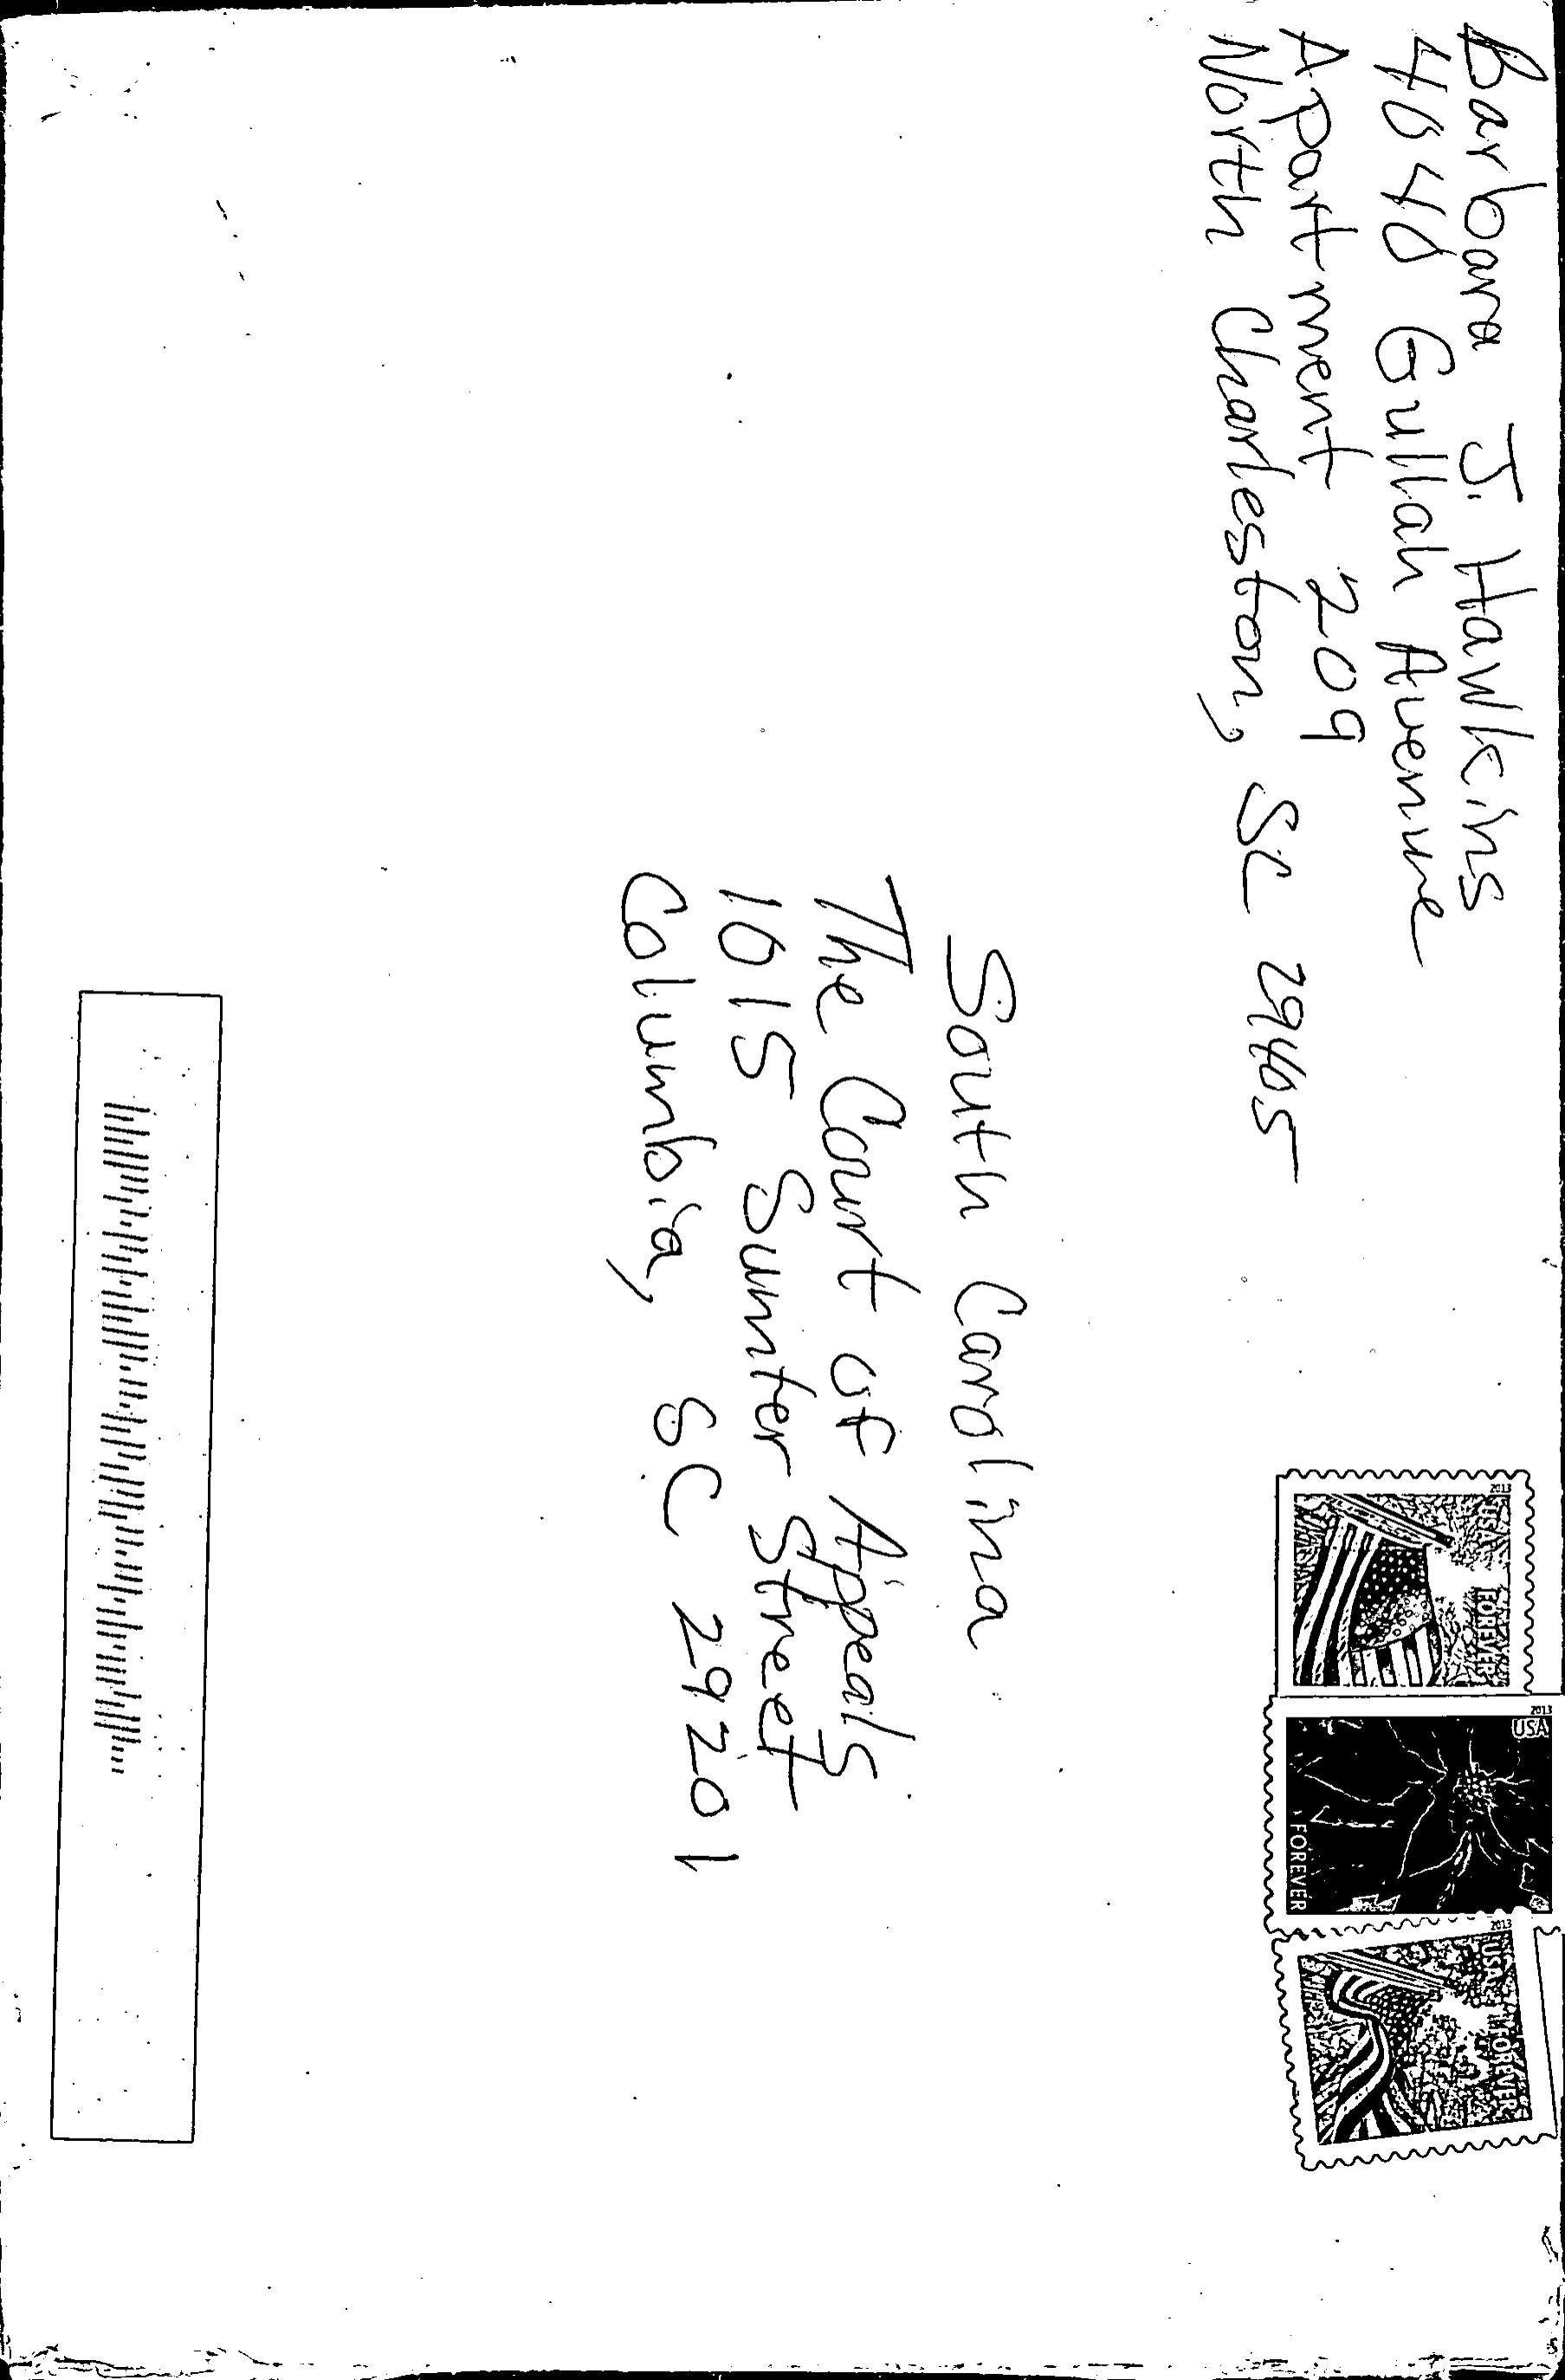 Barbara J. Hawkins
4040 Gullah Avenue
Apartment 209
North Charleston, SC 29405
2013
USA FOREVER
2013
USA
FOREVER
2013
USA FOREVER
South Carolina
The Court of Appeals
1015 Sumter Street
Columbia, SC 29201